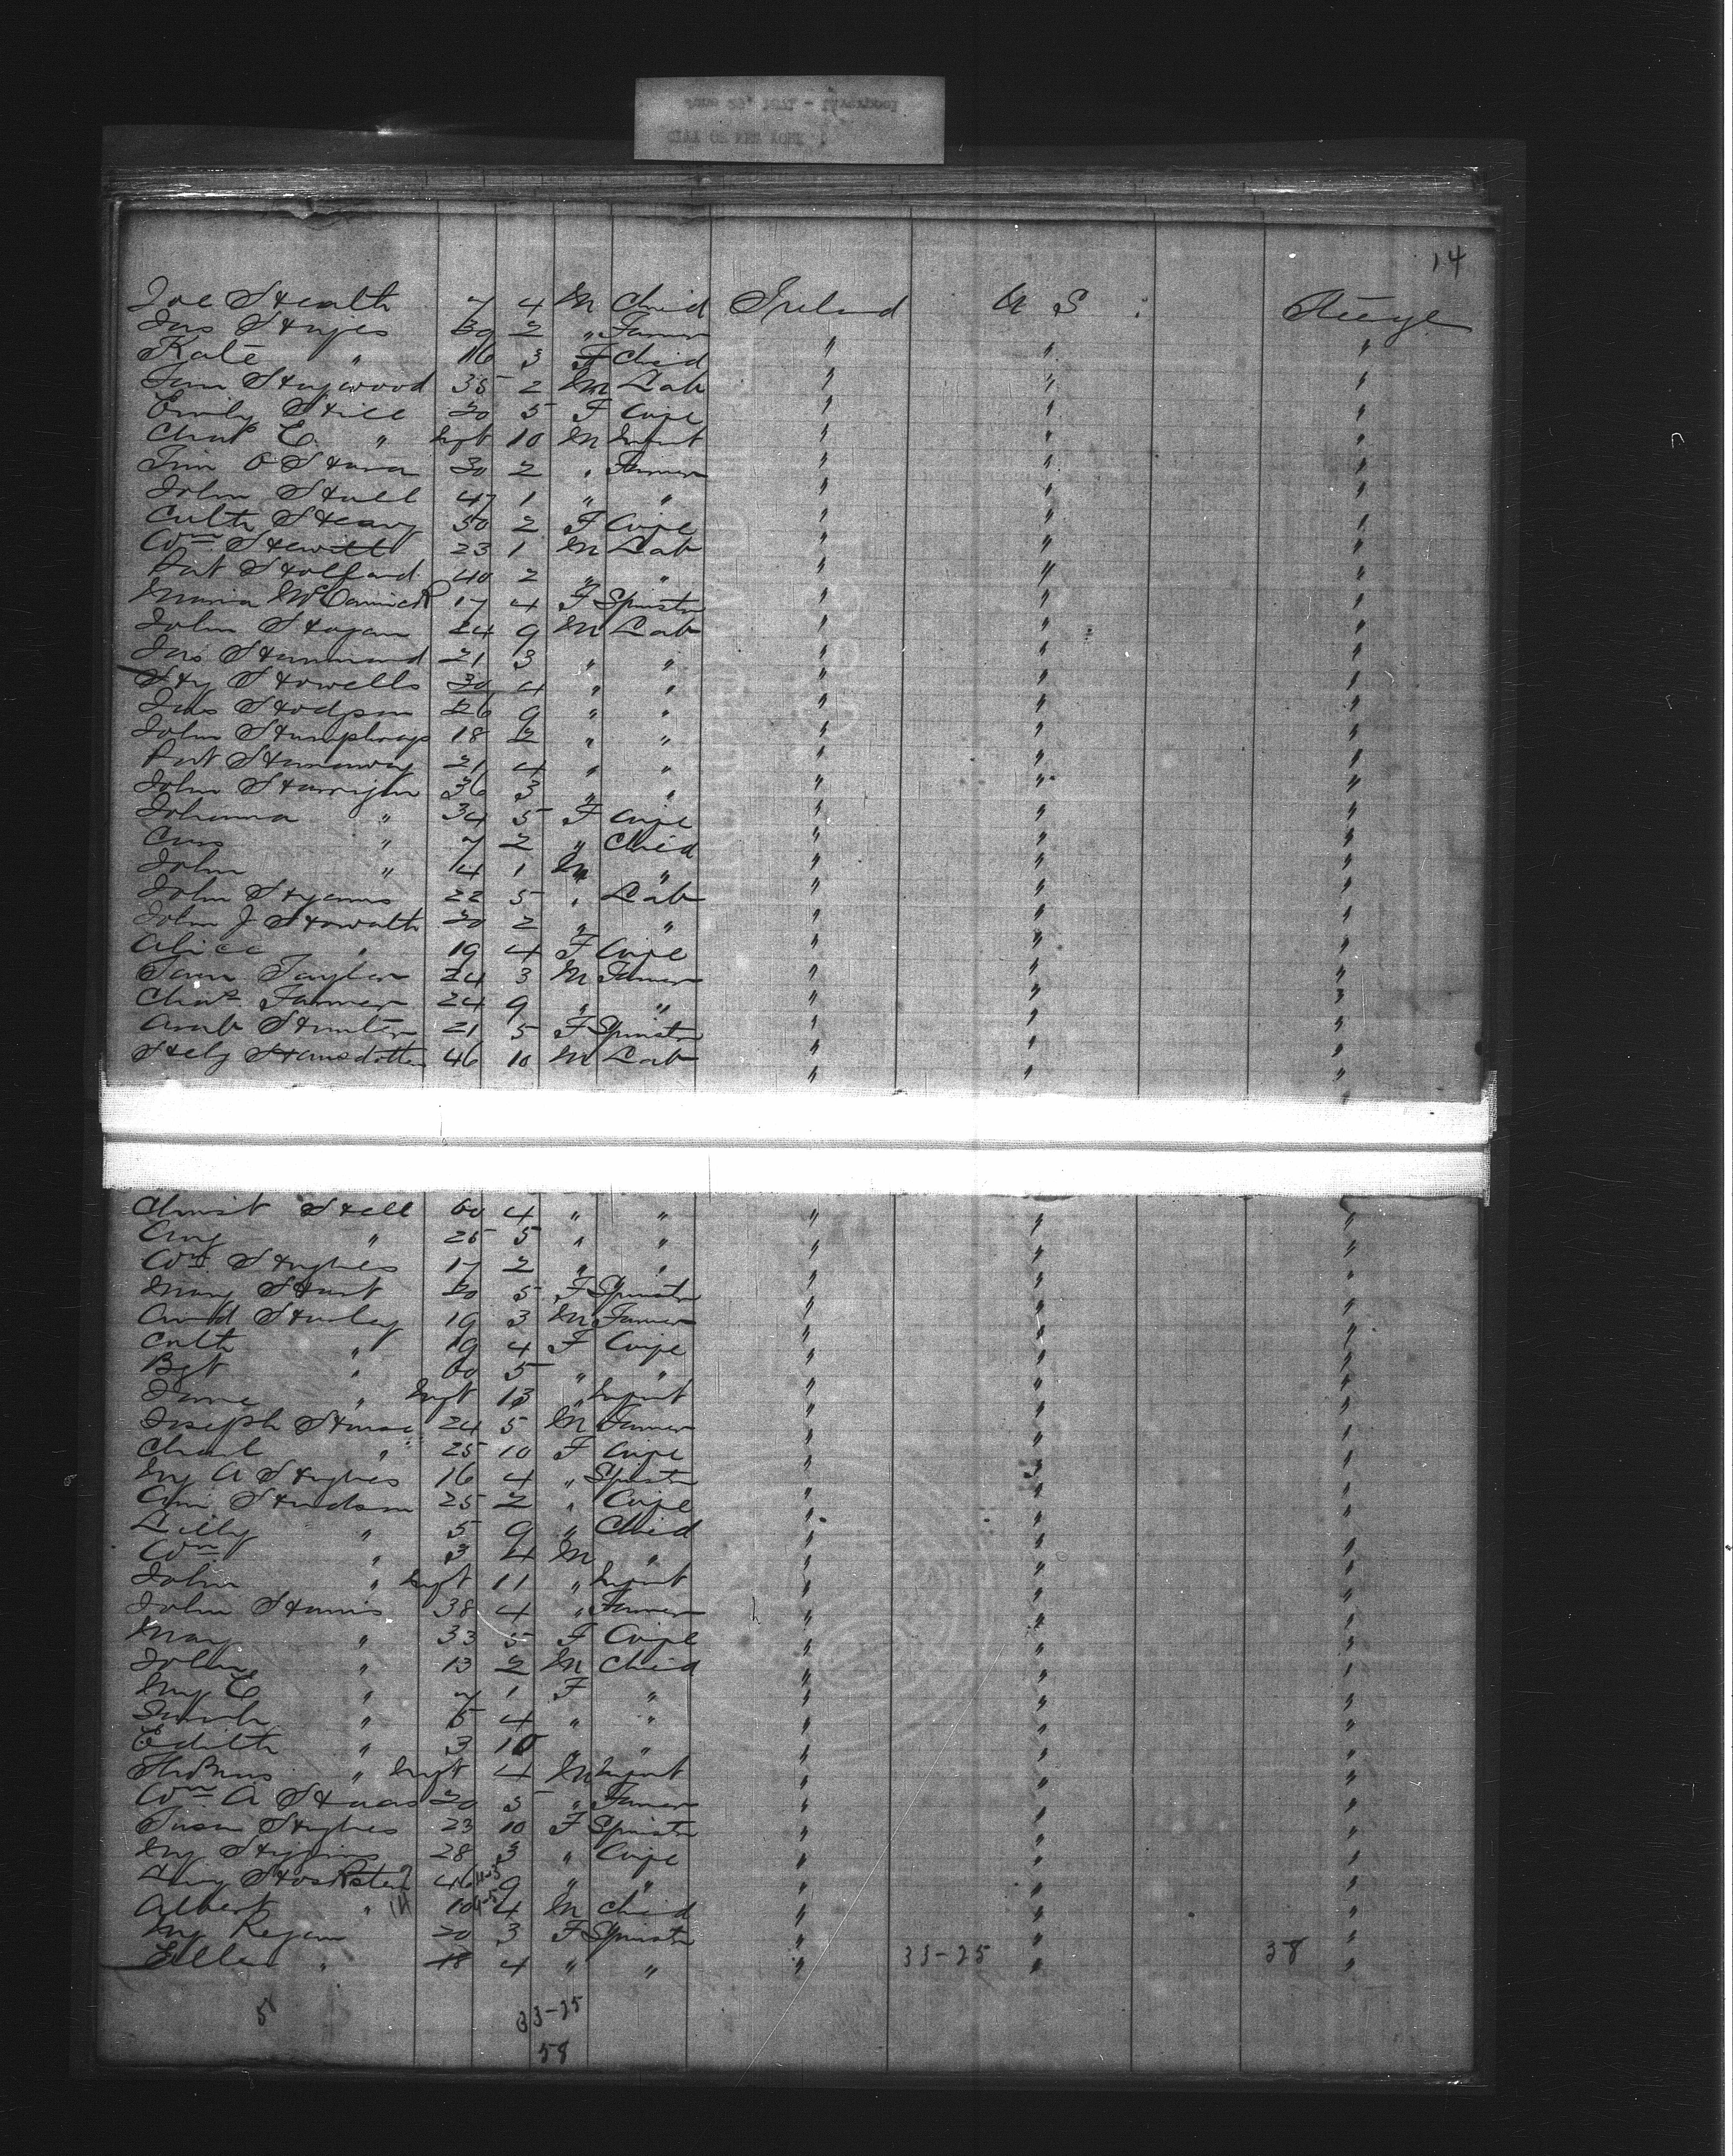 14
Joe Heath 7 4 M Child Ireland U S Steerage
Jas Hayes 39 2 " Farmer " " "
Kate " 16 3 F Child " " "
Sam Haywood 35 2 M Lab " " "
Emily Hill 20 5 F Wife " " "
Chas E. " Inft 10 M Infant " " "
Tim O Hara 30 2 " Farmer " " "
John Hull 47 1 " " " " "
Cath Heavy 50 2 F Wife " " "
Wm Hewitt 23 1 M Lab " " "
Pat Holland 40 2 " " " " "
Maria McCormick 17 4 F Spinster " " "
John Hogan 24 9 M Lab " " "
Jas Hammond 21 3 " " " " "
Hy Howells 30 4 " " " " "
Jas Hodgson 26 9 " " " " "
John Humphrays 18 2 " " " " "
Pat Hanaway 21 4 " " " " "
John Harrigan 36 3 " " " " "
Johanna " 34 5 F Wife " " "
" 7 2 " Child " " "
John " 4 1 M " " " "
John Hyams 22 5 " Lab " " "
John J Howath 20 2 " " " " "
Alice " 19 4 F Wife " " "
Sam Taylor 24 3 M Farmer " " "
Chas Farmer 24 9 " " " " "
Hunter 21 5 F Spinster " " "
Hansdotter 46 10 M Lab " " "
Christ Hell 60 4 " " " " "
" 25 5 " " " " "
Wm Hughes 17 2 " " " " "
Mary Hunt 20 5 F Spinster " " "
Hurley 19 3 M Farmer " " "
Cath " 19 4 F Wife " " "
Bgt " 60 5 " " " " "
" Inft 13 " Infant " " "
Joseph 24 5 M Farmer " " "
" 25 10 F Wife " " "
My A Hughes 16 4 " Spinster " " "
Hudson 25 2 " Wife " " "
Lilly " 5 9 " Child " " "
Wm " 3 4 M " " " "
John " Inft 11 " Infant " " "
John Harris 38 4 " Farmer " " "
Mary " 33 5 F Wife " " "
John " 13 2 M Child " " "
My E " 7 1 F " " " "
Sarah " 5 4 " " " " "
Edith " 3 10 " " " " "
Thomas " Inft 4 M Infant " " "
Wm A Haas 20 5 " Farmer " " "
Susan Hughes 23 10 F Spinster " " "
My Higgins 28 3 " Wife " " "
46 9 " " " " "
Albert " 10 4 M Child " " "
My Regan 20 3 F Spinster " " "
Ellen " 18 4 " " " 33-25 " 38 "
5 33-25
58